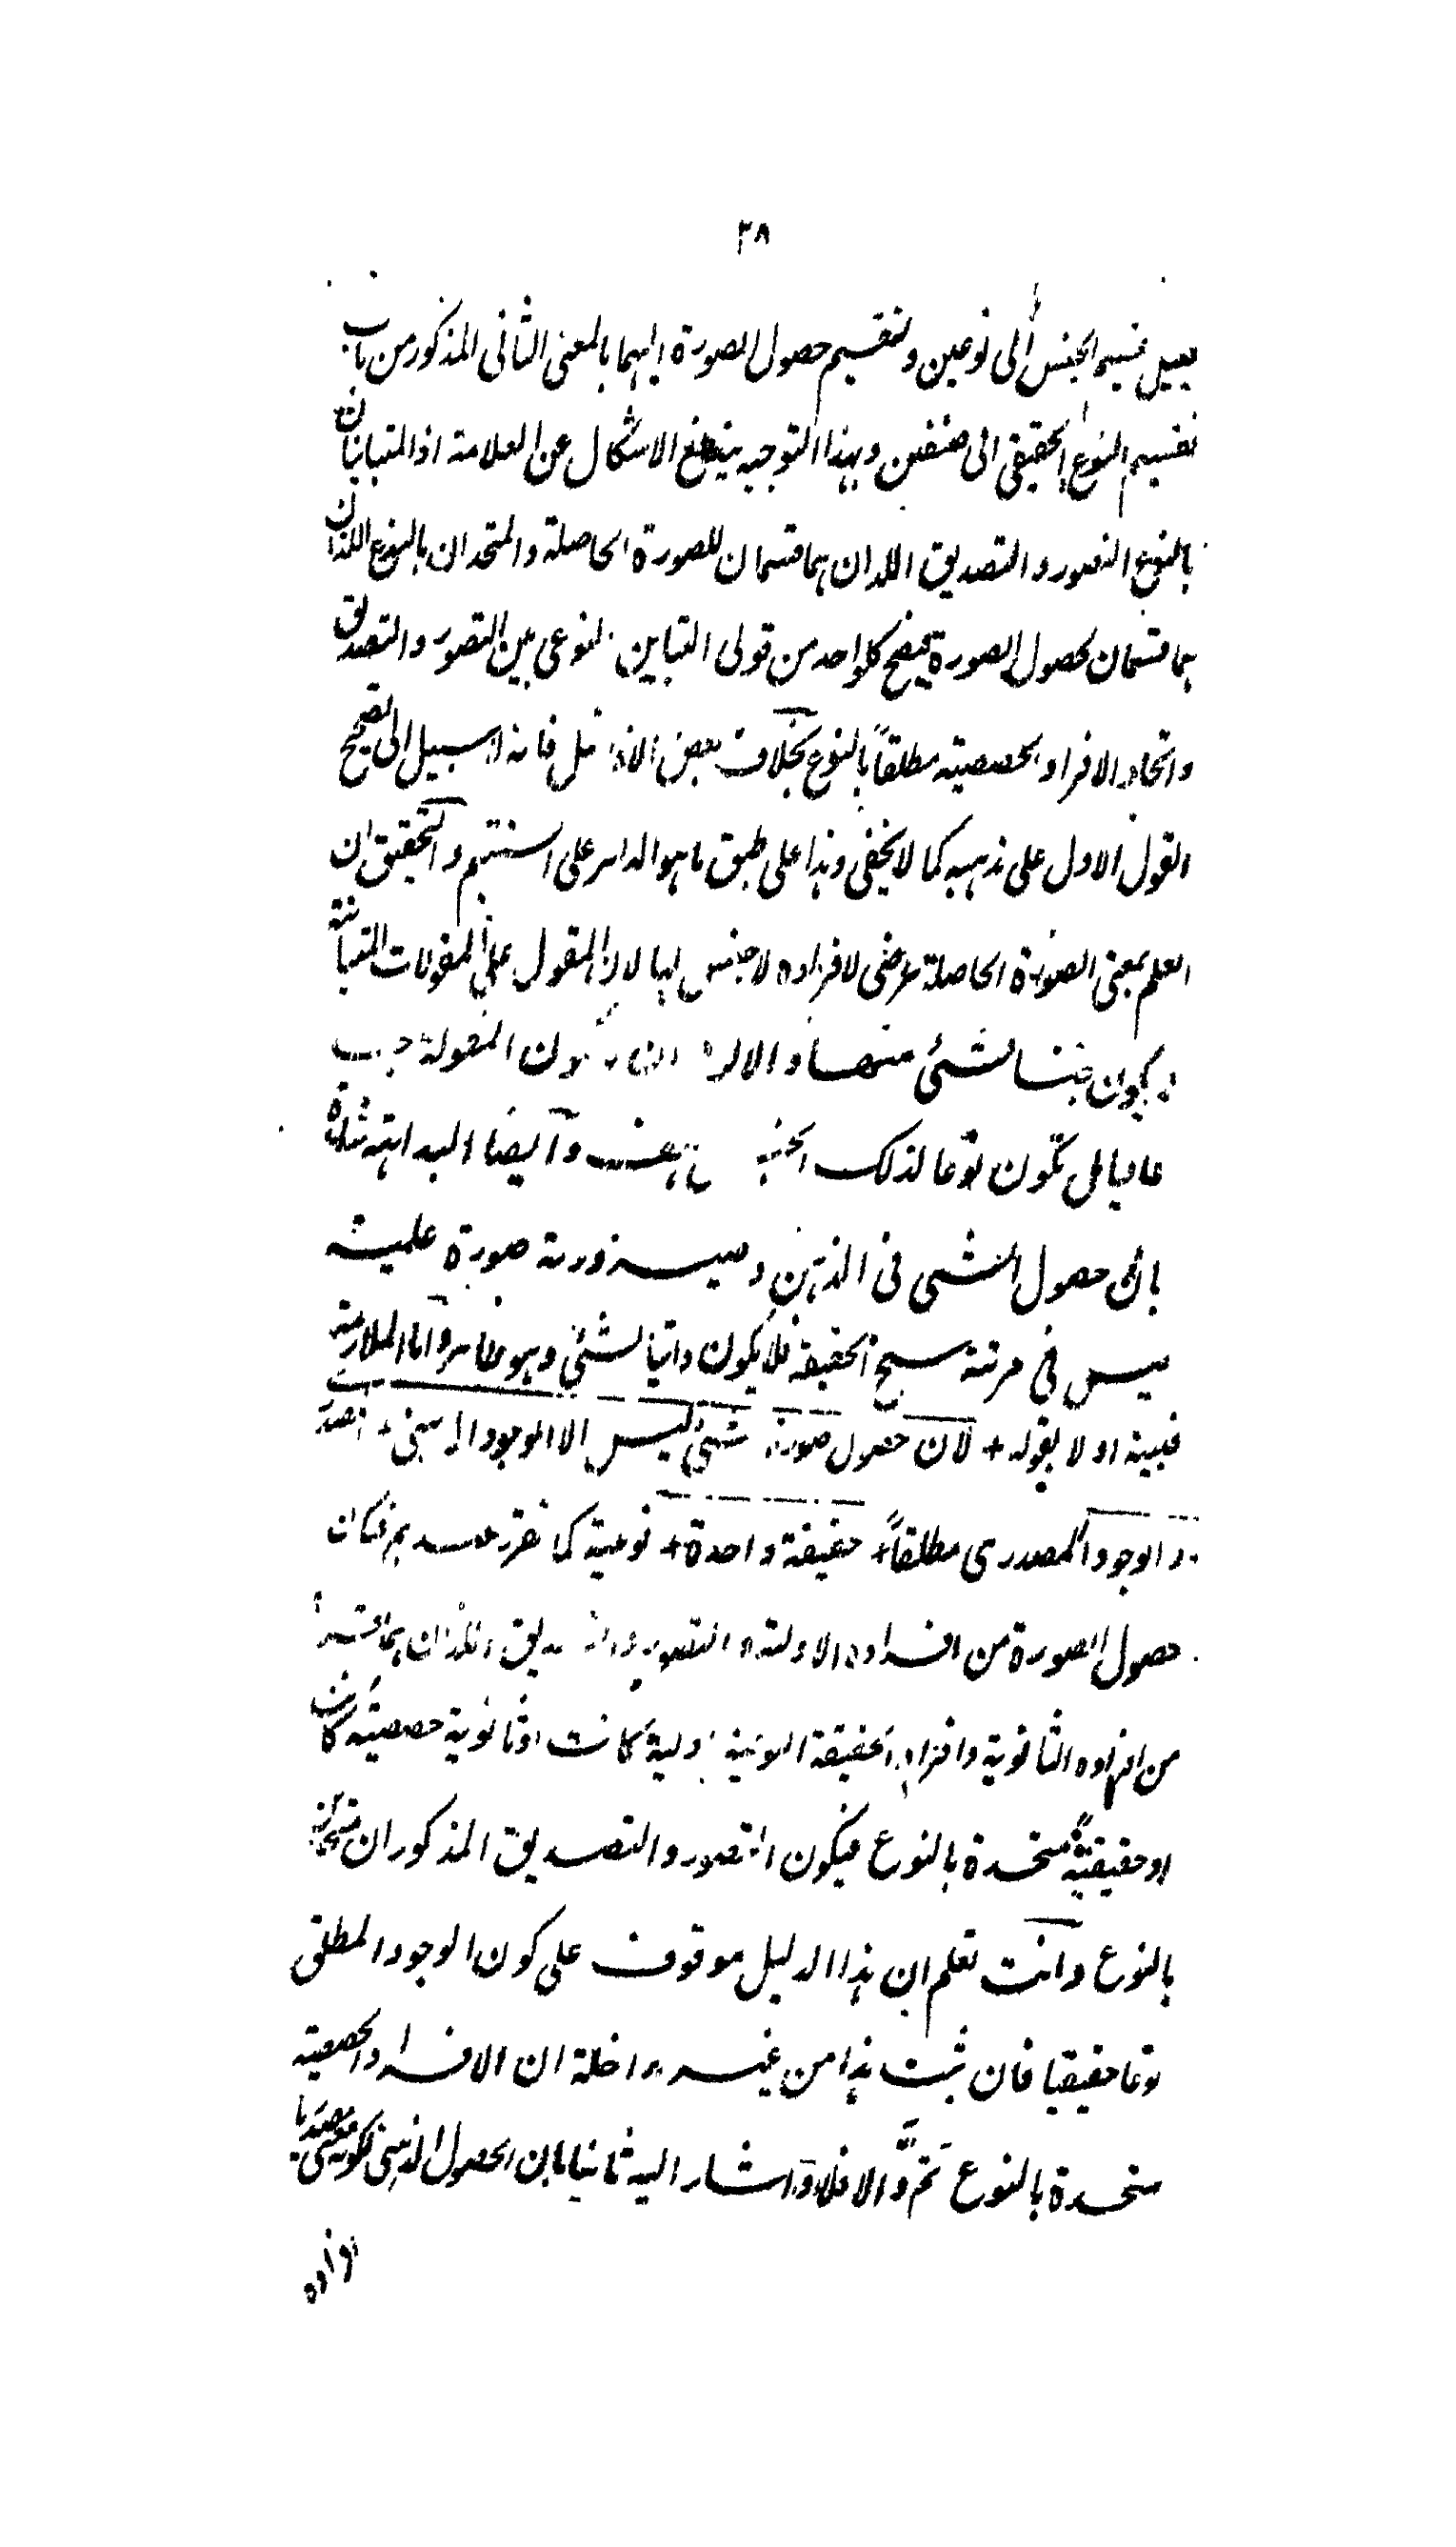 ٣٨
قبيل تقسيم الجنس الى نوعين وتقسيم حصول الصورة اليهما بالمعنى الثانى المذكور من باب
تقسيم النوع الحقيقى الى صنفين وبهذا التوجيه يندفع الاشكال عن العلامة اذ المتباينان
بالنوع التصور والتصديق اللذان هما قسمان للصورة الحاصلة والمتحدان بالنوع اللذان
هما قسمان لحصول الصورة فيصح كلا واحد من قولى التباين النوعى بين التصور والتصديق
واتحاد الافراد الحصصية مطلقاً بالنوع بخلاف بعض الافاضل فانه لا سبيل الى تصحيح
القول الاول على مذهبه كما لا يخفى وهذا على طبق ما هو الدائر على السنتهم والتحقيق ان
العلم بمعنى الصورة الحاصلة عرضى لافراده لا جنس لها لان المقول على المقولات المتباينة
لا يكون جنسا لشئ منها والا لزم ان لا تكون المقولة جنسا
عاليا بل تكون نوعا لذلك الجنس هف وايضا البداهة شاهدة
بان حصول الشئ فى الذهن وصيرورته صورة علمية
ليس فى مرتبة سنخ الحقيقة فلا يكون ذاتيا لشئ وهو ظاهر واما الملازمة
فبينه اولا بقوله + لان حصول صورة شئ ليس الا الوجود الذهنى +
والوجود المصدرى مطلقاً + حقيقة واحدة + نوعية كما تقرر عندهم فكان
حصول الصورة من افراده الاولية والتصور والتصديق اللذان هما قسماه
من افراده الثانوية وافراد الحقيقة النوعية اولية كانت او ثانوية حصصية كانت
او حقيقية متحدة بالنوع فيكون التصور والتصديق المذكوران متحدين
بالنوع وانت تعلم ان هذا الدليل موقوف على كون الوجود المطلق
نوعا حقيقيا فان ثبت هذا من غير مداخلة ان الافراد الحصصية
متحدة بالنوع تم والا فلا واشار اليه ثانيا بان الحصول الذهنى لكونه معنى مصدريا
افراده